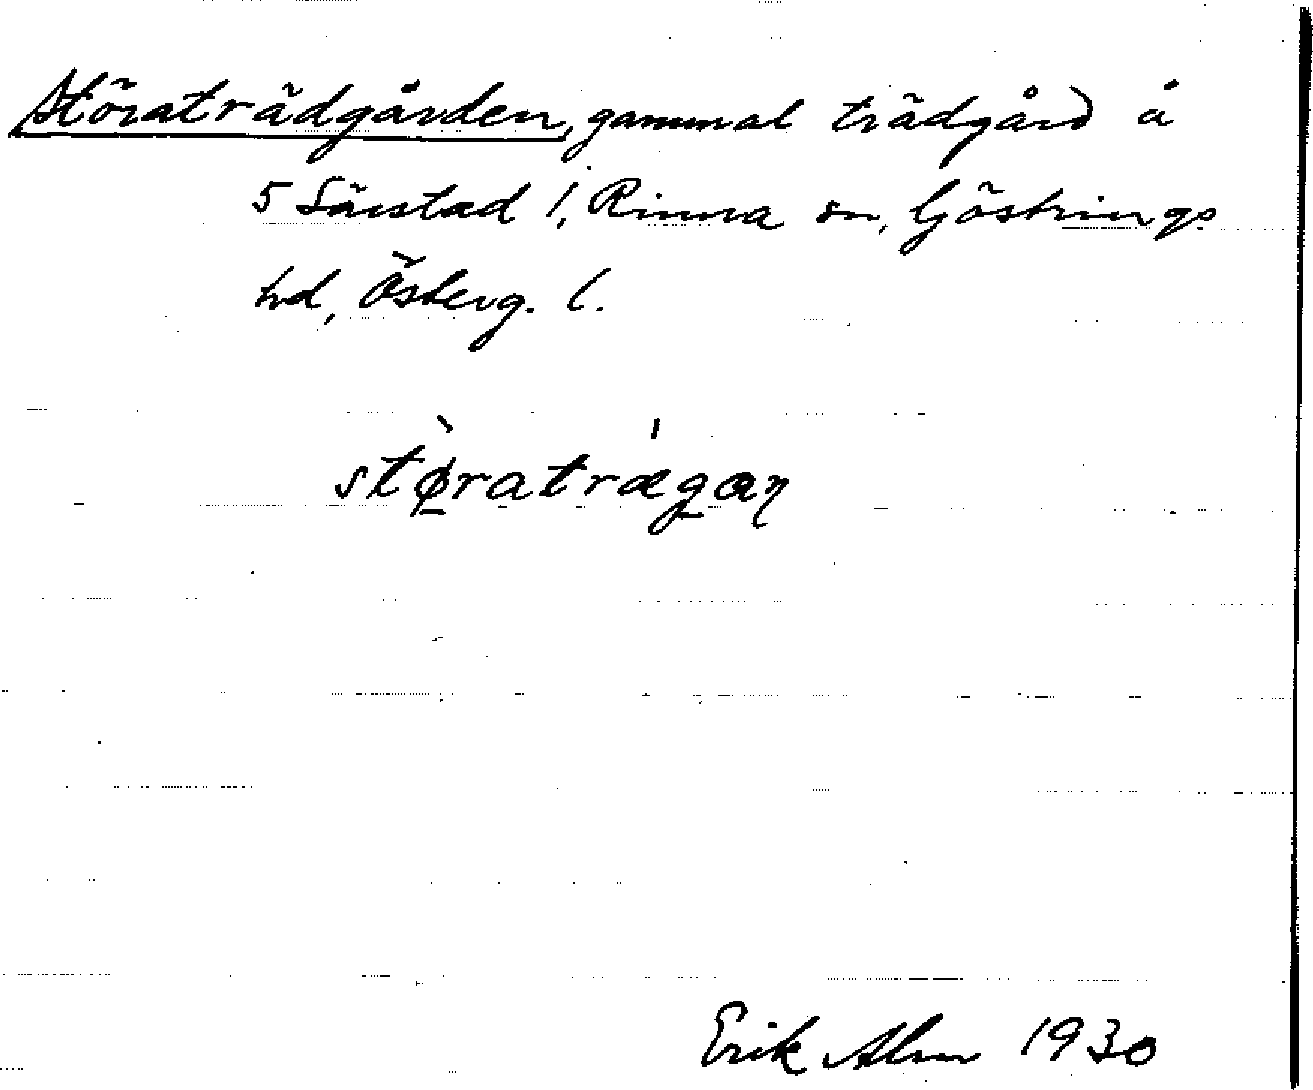 Störaträdgården, gammal trädgård å
5 Särstad 1, Rinna sn, Göstrings
hd, Österg. l.
stø̀ratrǽgaɳ
Erik Alm 1930